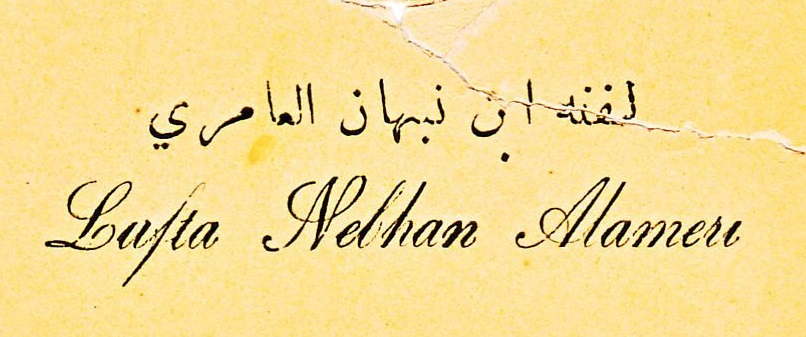 لفته ابن نبهان العامري
Lufta Nebhan Alameri